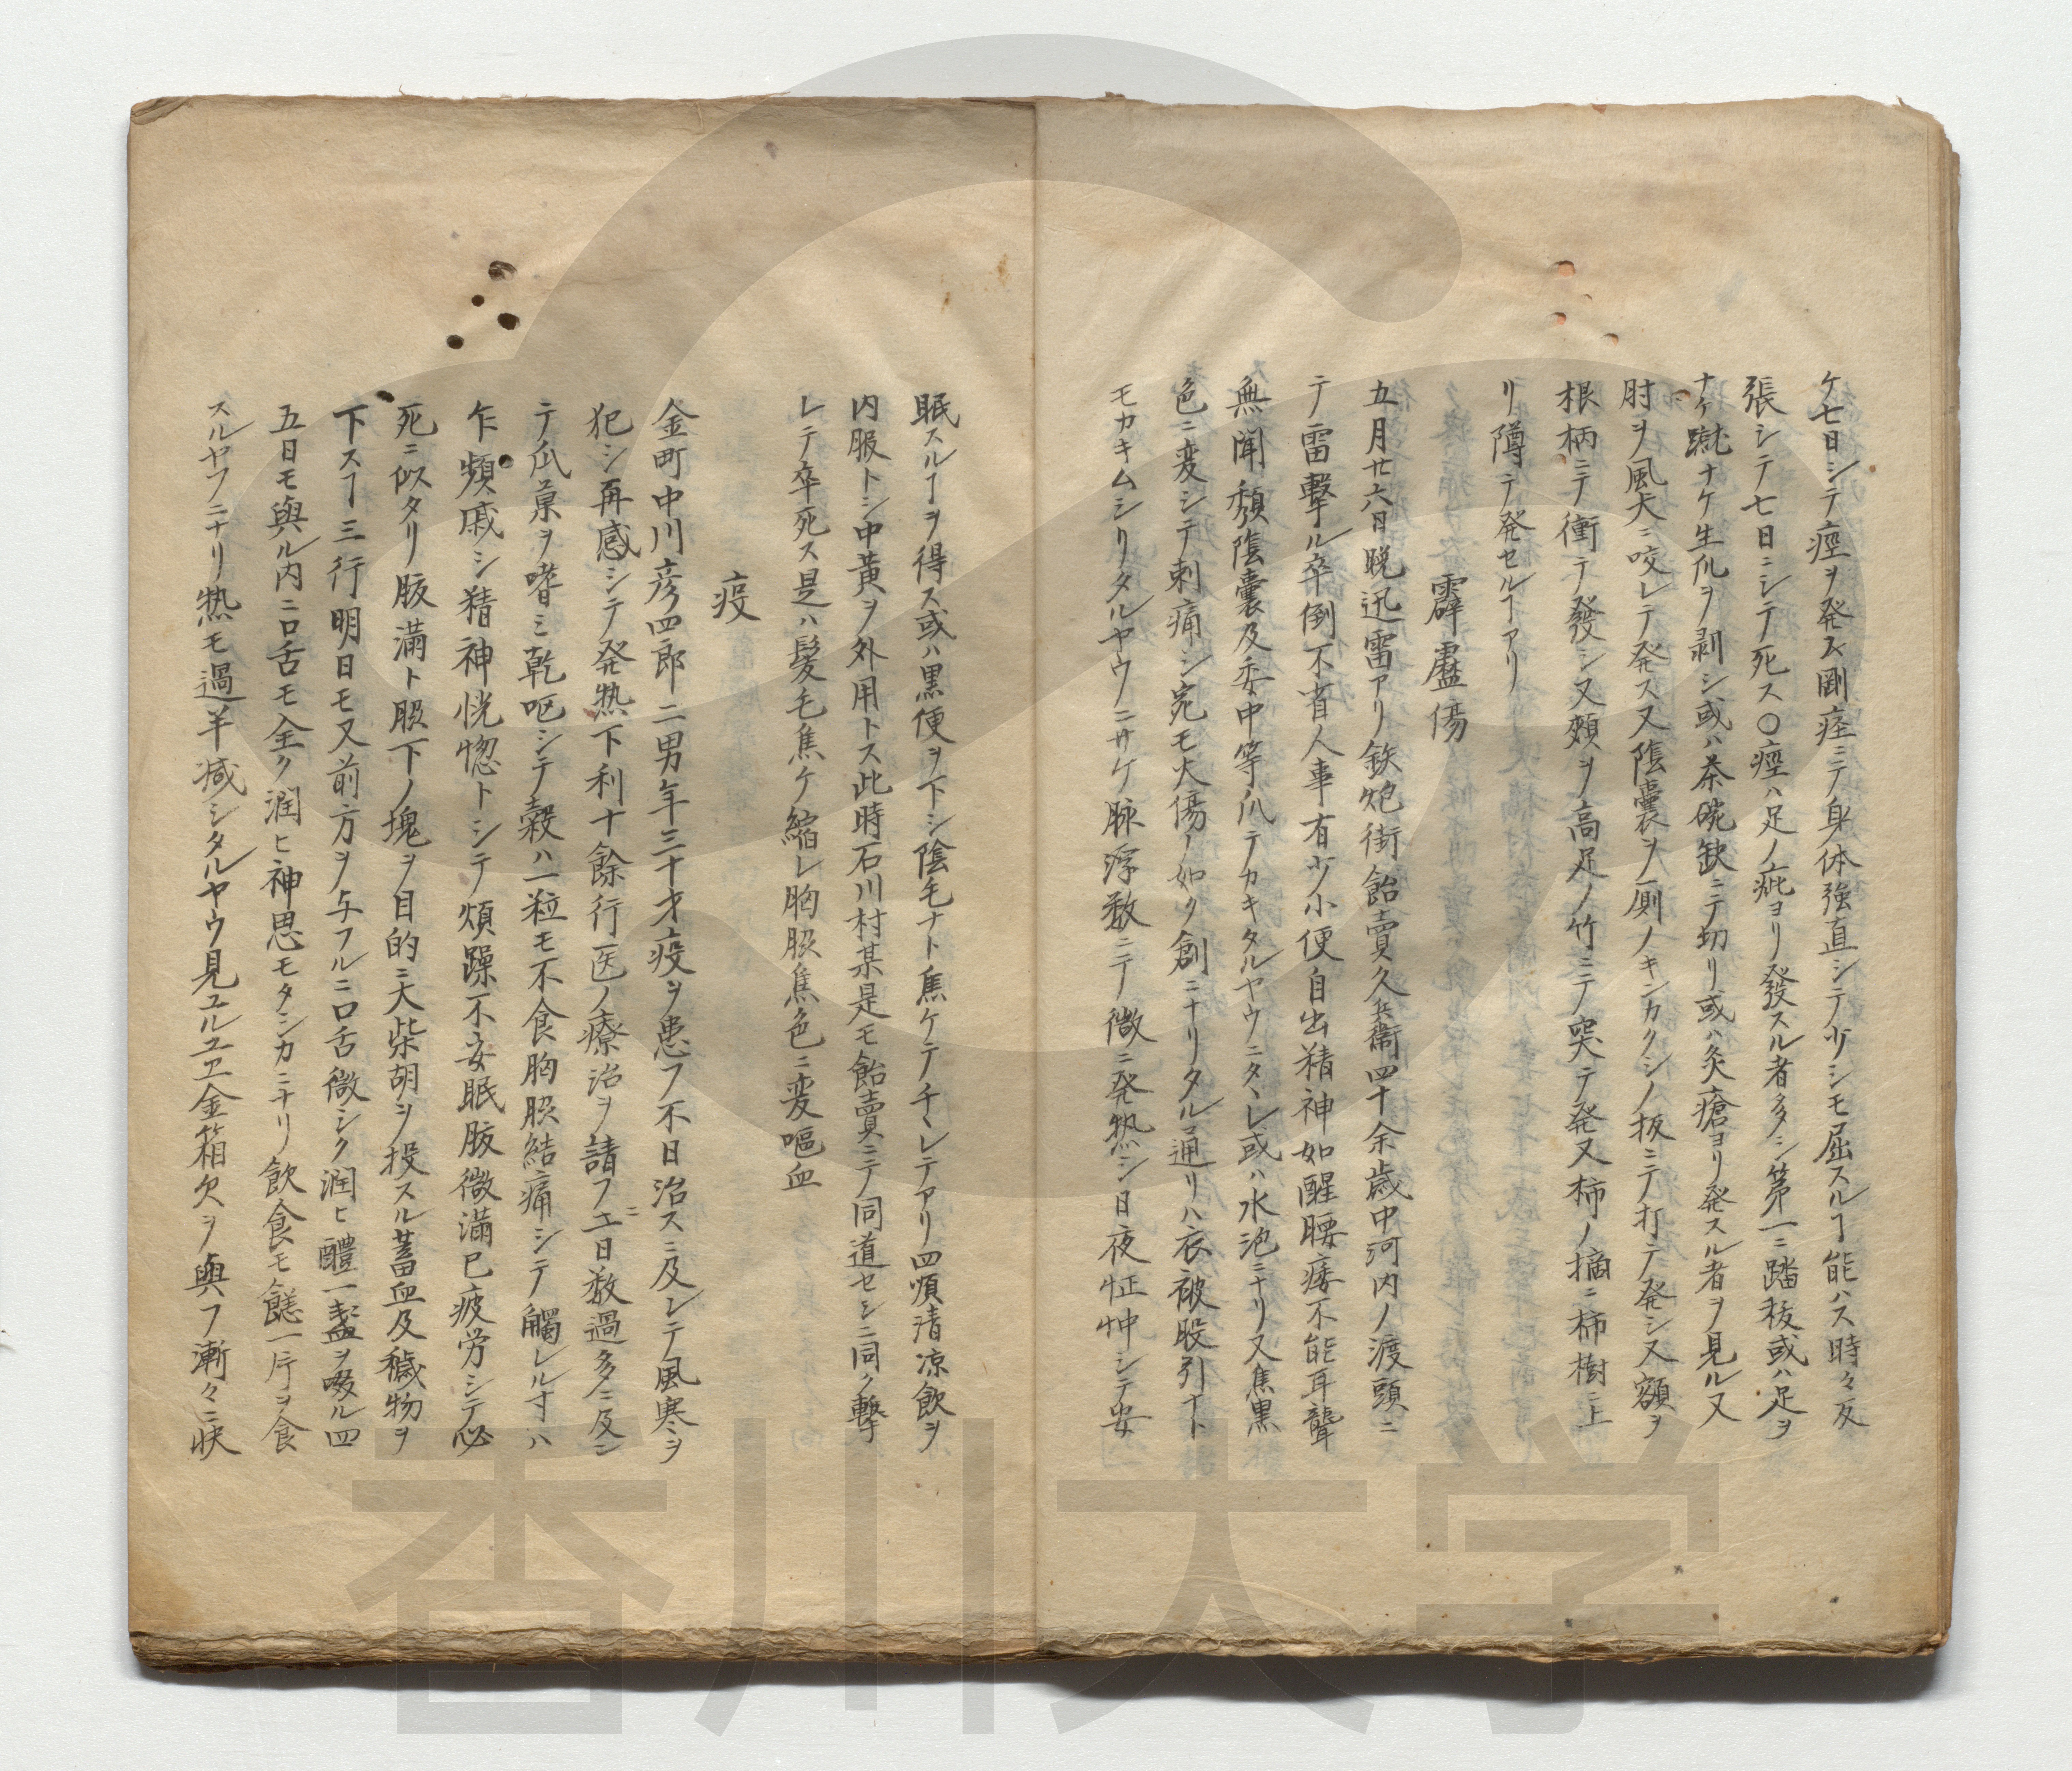 ケ七日シテ痙ヲ発ス剛痙ニテ身体強直シテ少シモ屈スルヿ能ハス時々反
張シテ七日ニシテ死ス〇痙ハ足ノ疵ヨリ發スル者多シ第一ニ踏移或ハ足ヲ
ナケ蹴ナケ生爪ヲ剥シ或ハ茶碗缺ニテ切リ或ハ灸瘡ヨリ発スル者ヲ見ル又
肘ヲ風犬ニ咬レテ発ス又陰嚢ヲ厠ノキンカクシノ板ニテ打テ発シ又額ヲ
根柄ニテ衝テ發シ又頬ヲ高足ノ竹ニテ突テ発又柿ノ摘ニ柿樹ニ上
リ墫テ発セルヿアリ
霹靂傷
五月廿六日晩迅雷アリ鉄炮街飴賣久兵衛四十余歳中河内ノ渡頭ニ
テ雷撃ル卒倒不省人事有少小便自出精神如醒腰痿不能耳聾
無聞頽陰嚢及委中等爪テカキタルヤウニタヽレ或ハ水泡ニナリ又焦黒
色ニ変シテ刺痛シ宛モ火傷ノ如ク創ニナリタル通リハ衣被股引ナト
モカキムシリタルヤウノニサケ脉浮数ニテ微ニ発熱シ日夜怔忡シテ安
眠スルヿヲ得ス或ハ黒便ヲ下シ陰毛ナト焦ケテチヽレテアリ四順清凉飲ヲ
内服トシ中黄ヲ外用トス此時石川村某是モ飴賣ニテ同道セシニ同ク撃
レテ卒死ス是ハ髪毛焦ケ縮レ胸腹焦色ニ変嘔血
疫
金町中川彦四郎二男年三十才疫ヲ患フ不日治スニ及レテ風寒ヲ
犯シ再感シテ発熱下利十餘行医ノ療治ヲ請フニ日数過多ニ及ン
テ瓜菓ヲ嗜ミ乾呕シテ穀ハ一粒モ不食胸腹結痛シテ觸レル寸ハ
乍頻戚シ精神恍惚トシテ煩躁不安眠腹微滿已疲労シテ必
死ニ似タリ腹滿ト腹下ノ塊ヲ目的ニ大柴胡ヲ投スル蓄血及穢物ヲ
下スヿ三行明日モ又前方ヲ与フルニ口舌微シク潤ヒ醴一盞ヲ啜ル四
五日モ與ル内ニ口舌モ全ク潤ヒ神思モタシカニナリ飲食モ饎一片ヲ食
スルヤフニナリ熱モ過半減シタルヤウ見ユルユヱ金箱欠ヲ與フ漸々ニ快
香川大学